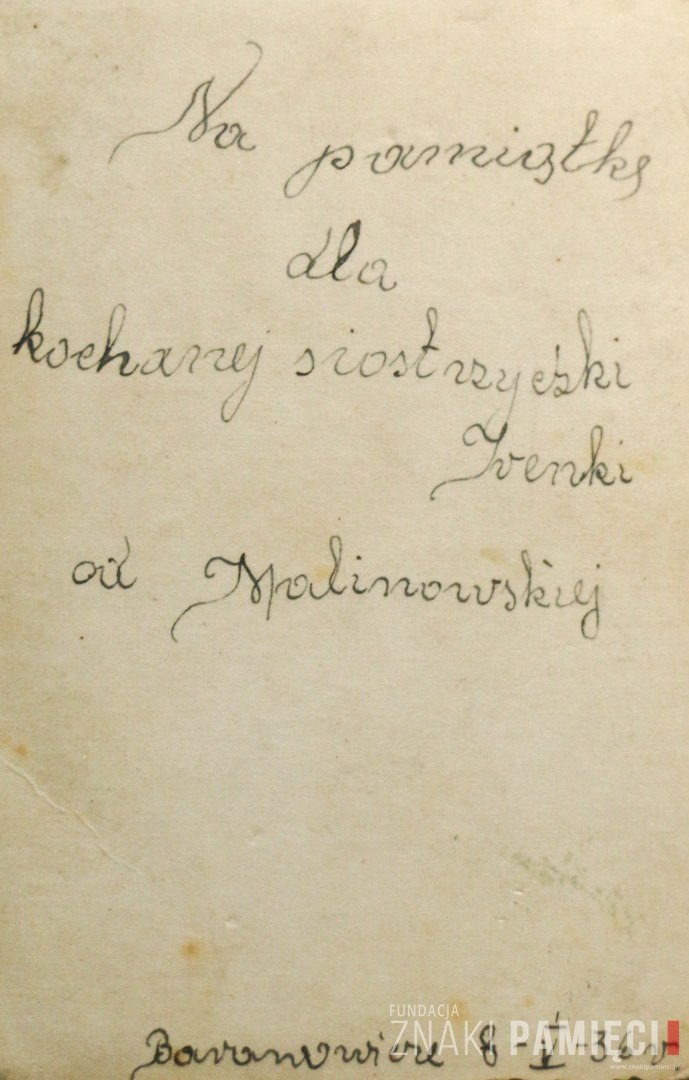 Na pamiątkę
dla
kochanej siostrzyczki
Irenki
od Malinowskiej
FUNDACJA
ZNAKI PAMIĘCI
www.znakipamieci.pl
Baranowicze 8-V-36 r.